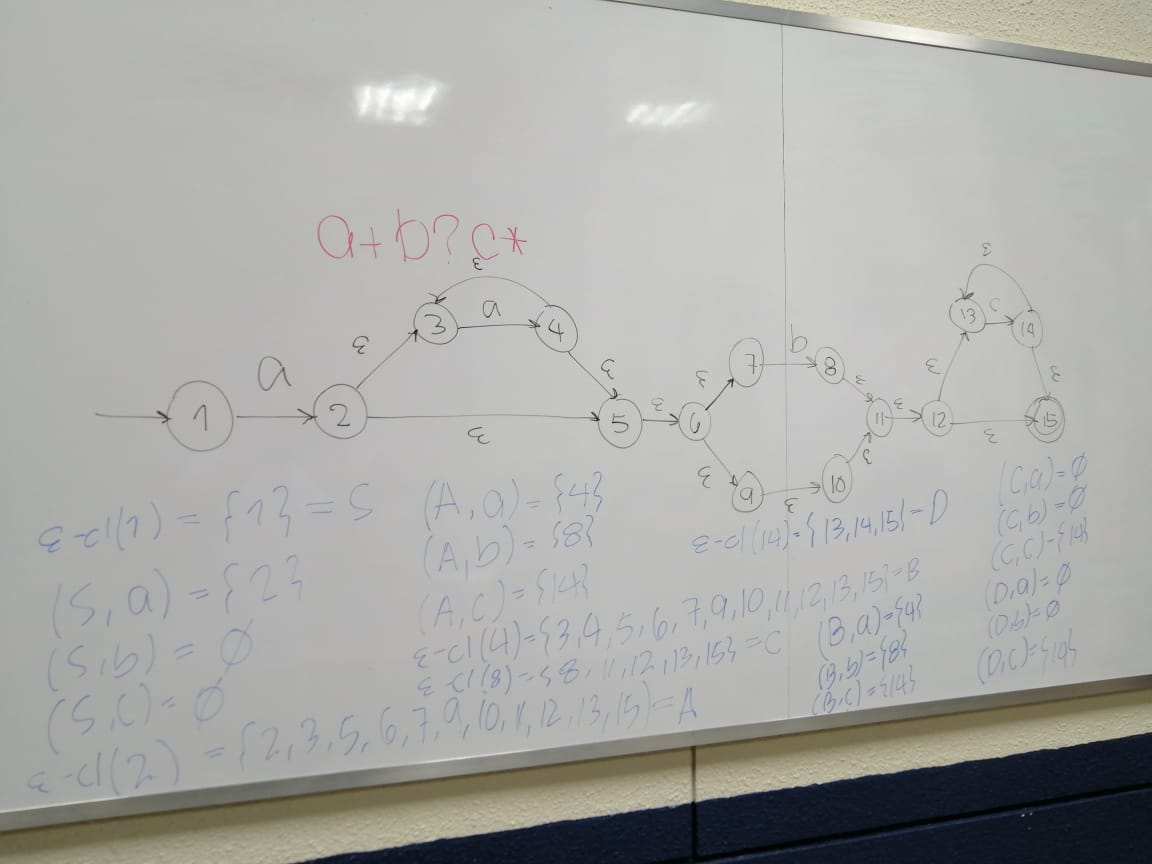 a+b?c*
ε
ε
a
c
1
a
2
ε
3
4
ε
5
ε
ε
6
ε
7
b
8
ε
ε
9
ε
10
ε
11
ε
12
ε
13
14
ε
15
ε
ε-cl(1) = {1} = S
(S,a) = {2}
(S,b) = ∅
(S,c) = ∅
ε-cl(2) = {2,3,5,6,7,9,10,11,12,13,15} = A
(A,a) = {4}
(A,b) = {8}
(A,c) = {14}
ε-cl(4) = {3,4,5,6,7,9,10,11,12,13,15} = B
ε-cl(8) = {8,11,12,13,15} = C
ε-cl(14) = {13,14,15} = D
(B,a) = {4}
(B,b) = {8}
(B,c) = {14}
(C,a) = ∅
(C,b) = ∅
(C,c) = {14}
(D,a) = ∅
(D,b) = ∅
(D,c) = {14}